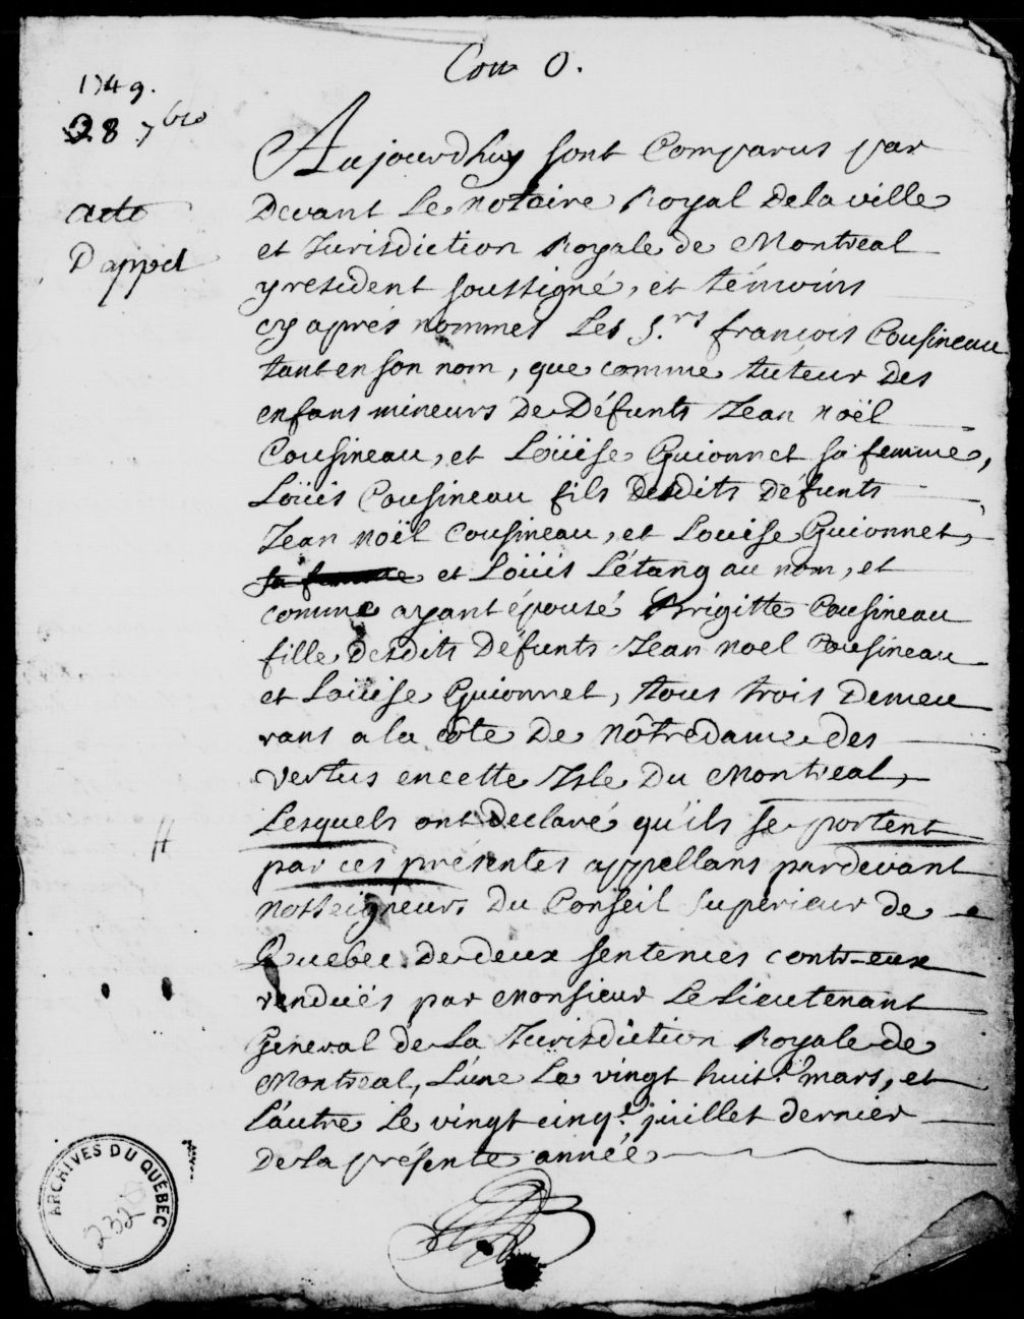 Cote O.
1749.
28 7bre
Acte
D'appel
Aujourdhuy sont Comparus par
Devant Le Notaire Royal de la ville
et Jurisdiction Royale de Montreal
y resident soussigné, et témoins
cy après nommés Les S.rs françois Cousineau
tant en son nom, que comme tuteur des
enfans mineurs De Défunts Jean Noël
Cousineau, et Loüise Guionnet sa femme,
Loüis Cousineau fils Desdits Défunts
Jean Noël Cousineau, et Louise Guionnet,
sa femme et Loüis Létang au nom, et
comme ayant épousé Brigitte Cousineau
fille Desdits Défunts Jean Noel Cousineau
et Loüise Guionnet, tous trois Demeu
rans a la côte De Nôtredame des
Vertus en cette Isle Du Montreal,
Lesquels ont declaré qu'ils se portent
par ces présentes appellans pardevant
Nosseigneurs Du Conseil Superieur de
Quebec de deux sentences contr-eux
renduës par Monsieur Le Lieutenant
General de La Jurisdiction Royale de
Montreal, L'une Le vingt huit.e mars, et
L'autre Le vingt cinq.e juillet dernier
De la présente année
ARCHIVES DU QUEBEC